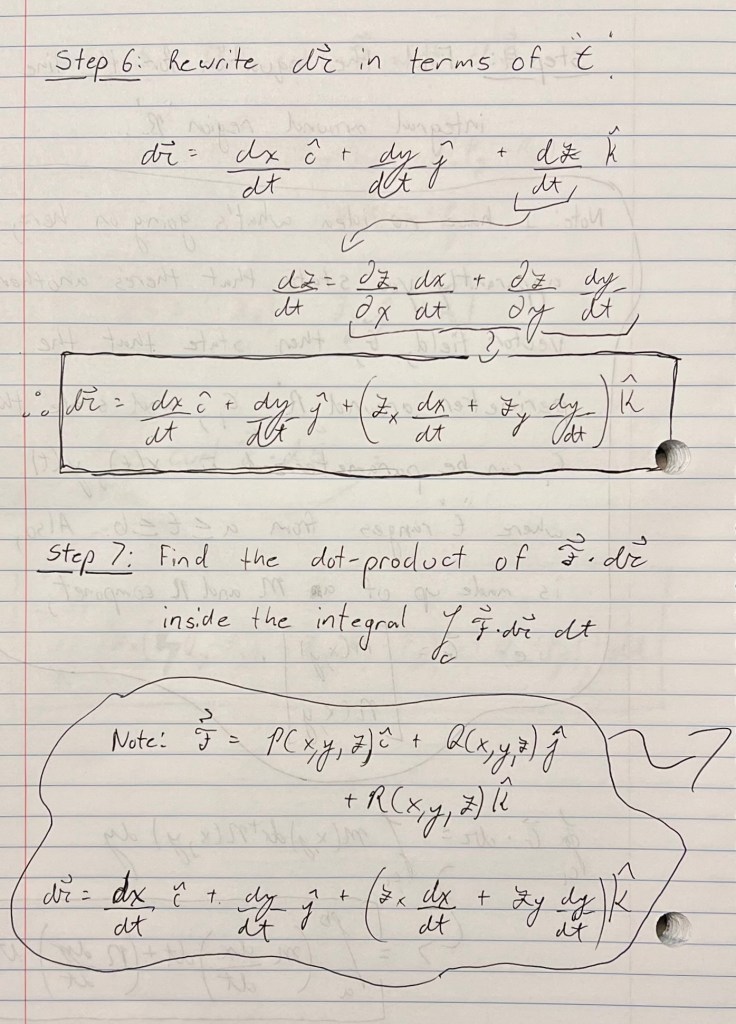 Step 6: Rewrite dr⃗ in terms of "t".
dr⃗ = dx/dt î + dy/dt ĵ + dz/dt k̂
dz/dt = ∂z/∂x dx/dt + ∂z/∂y dy/dt
∴ dr⃗ = dx/dt î + dy/dt ĵ + (z_x dx/dt + z_y dy/dt) k̂
Step 7: Find the dot-product of F⃗ · dr⃗
inside the integral ∫_c F⃗ · dr⃗ dt
Note: F⃗ = P(x,y,z) î + Q(x,y,z) ĵ
+ R(x,y,z) k̂
dr⃗ = dx/dt î + dy/dt ĵ + (z_x dx/dt + z_y dy/dt) k̂